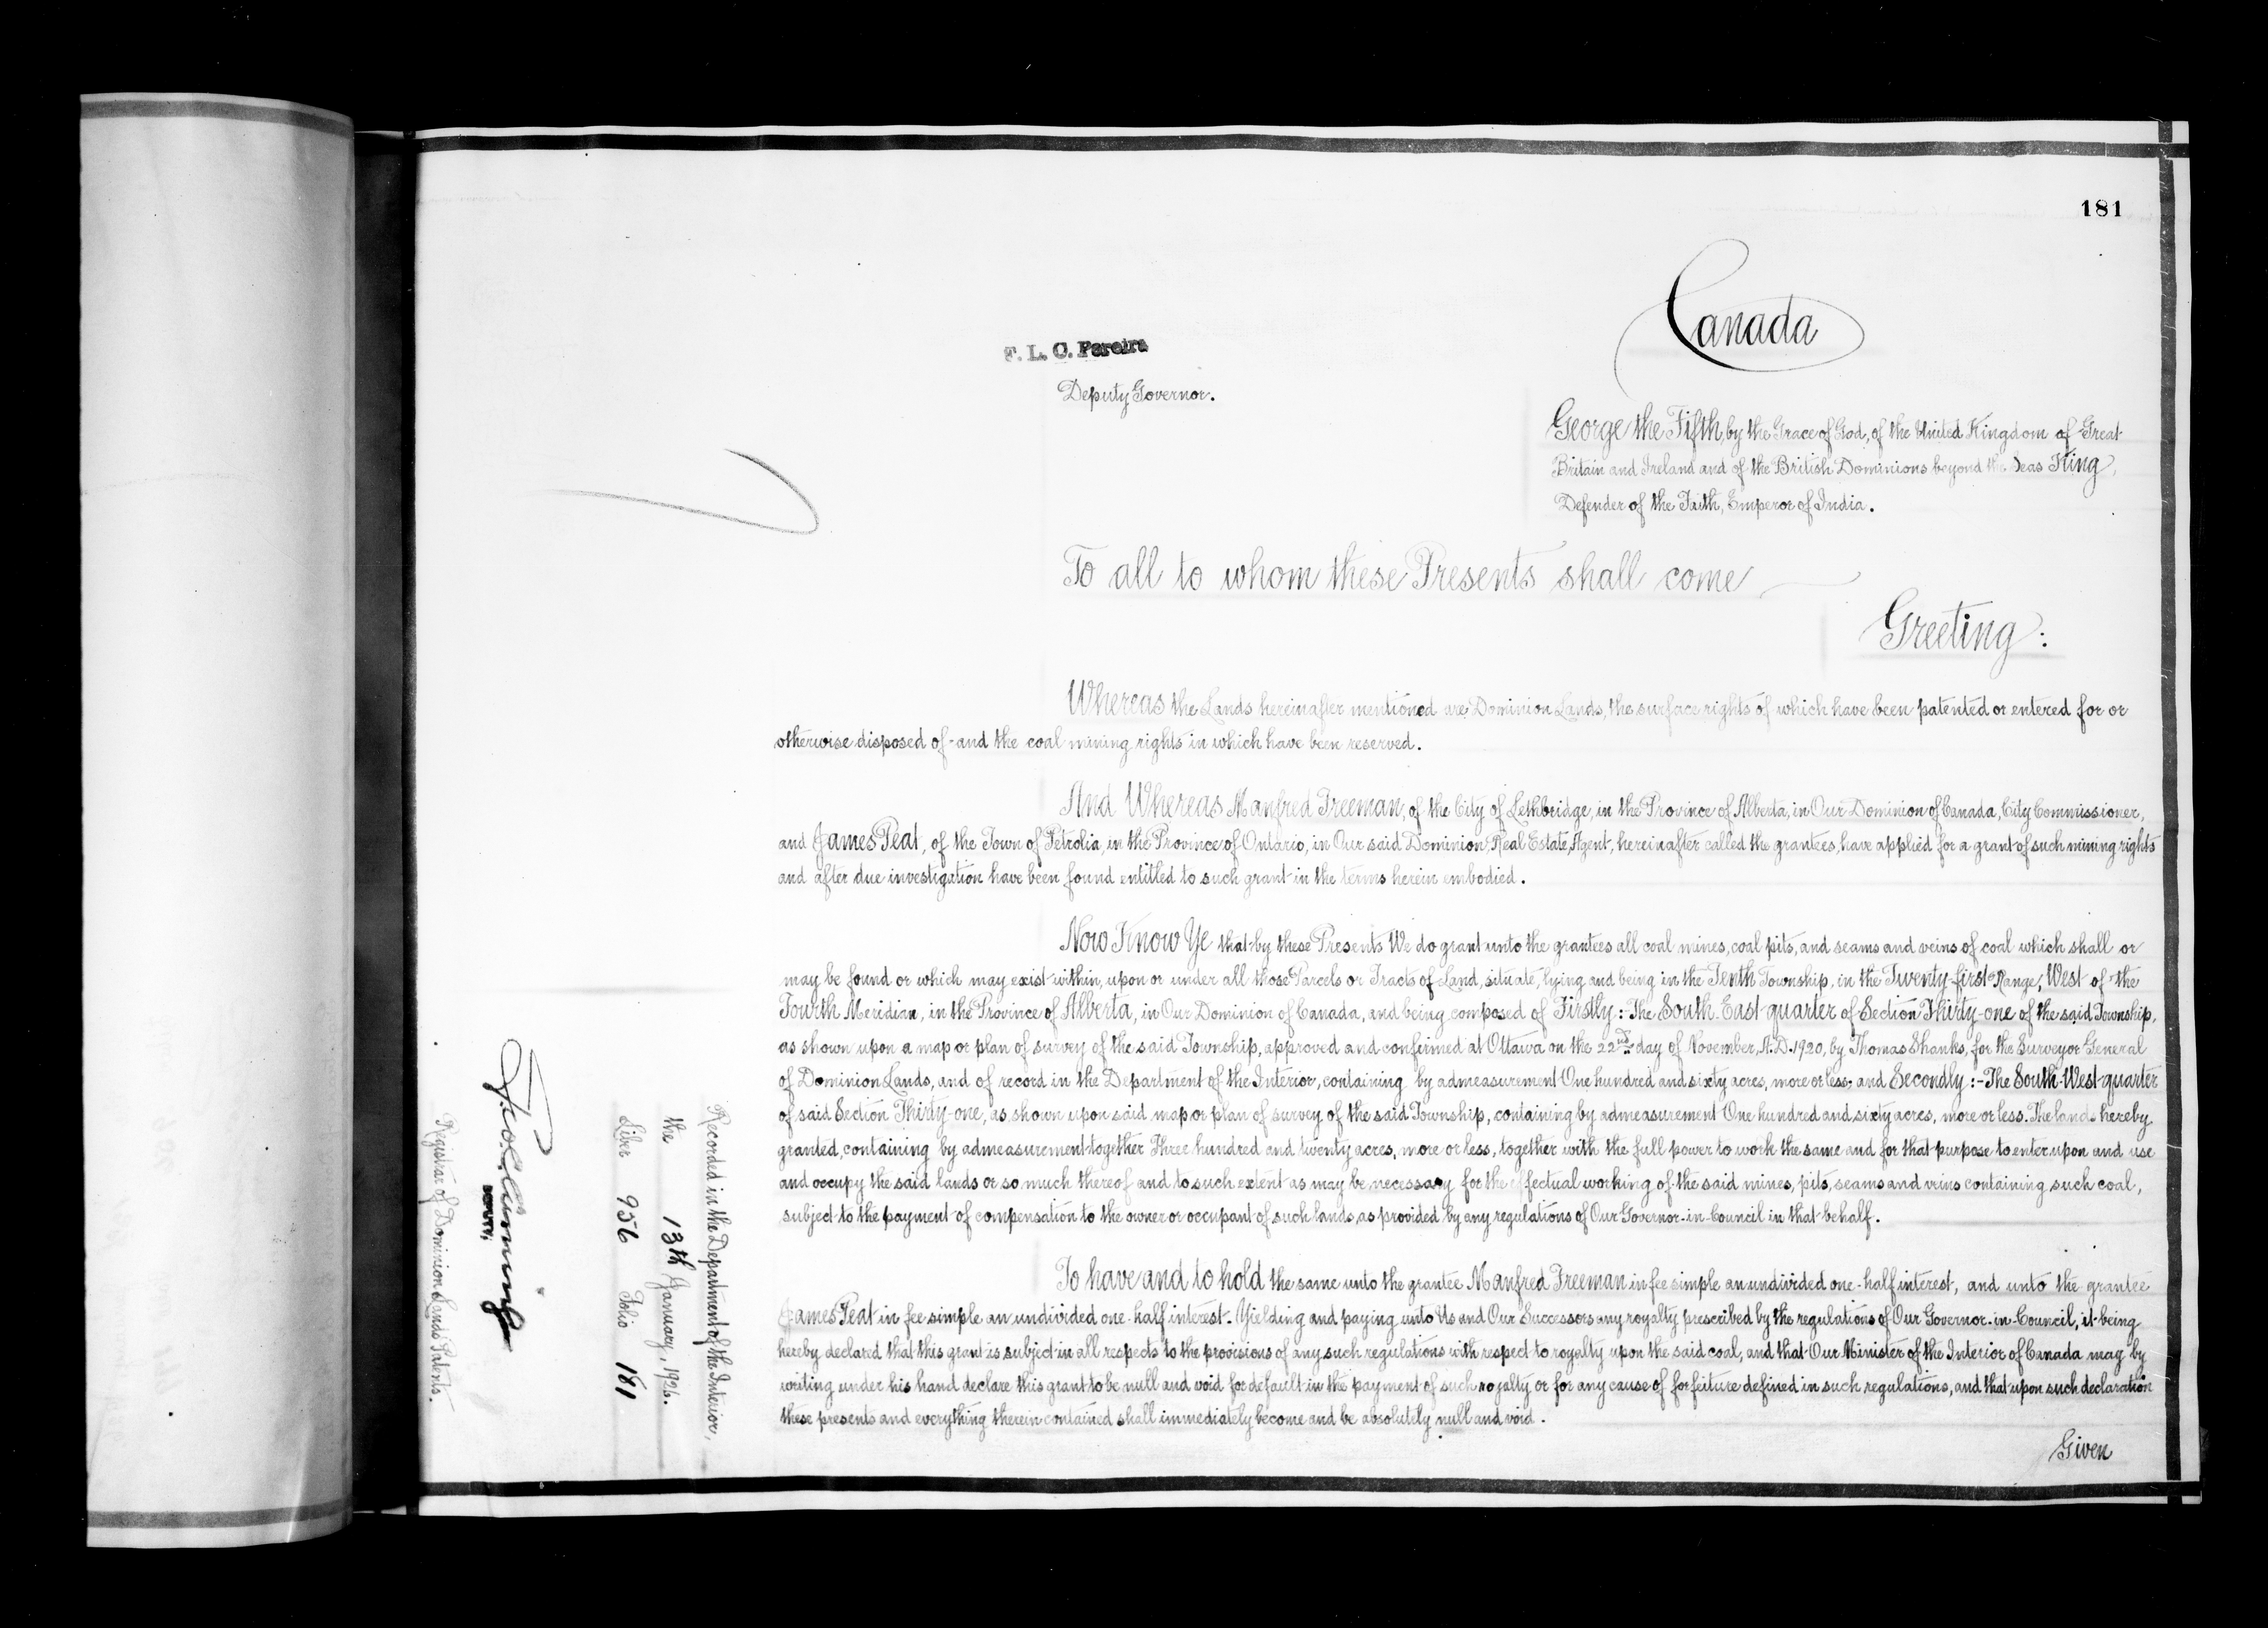 181
Canada
F. L. C. Pereira
Deputy Governor.
George the Fifth, by the Grace of God, of the United Kingdom of Great
Britain and Ireland and of the British Dominions beyond the Seas King,
Defender of the Faith, Emperor of India.
To all to whom these Presents shall come
Greeting:
Whereas the Lands hereinafter mentioned are Dominion Lands, the surface rights of which have been patented or entered for or
otherwise disposed of and the coal mining rights in which have been reserved.
And Whereas Manfred Freeman, of the City of Lethbridge, in the Province of Alberta, in Our Dominion of Canada, City Commissioner,
and James Peat, of the Town of Petrolia, in the Province of Ontario, in Our said Dominion, Real Estate Agent, hereinafter called the grantees, have applied for a grant of such mining rights
and after due investigation have been found entitled to such grant in the terms herein embodied.
Now Know Ye that by these Presents We do grant unto the grantees all coal mines, coal pits, and seams and veins of coal which shall or
may be found or which may exist within, upon or under all those Parcels or Tracts of Land, situate, lying and being in the Tenth Township, in the Twenty-first Range, West of the
Fourth Meridian, in the Province of Alberta, in Our Dominion of Canada, and being composed of Firstly:-The South East quarter of Section Thirty-one of the said Township,
as shown upon a map or plan of survey of the said Township, approved and confirmed at Ottawa on the 22nd day of November, A.D. 1920, by Thomas Shanks, for the Surveyor General
of Dominion Lands, and of record in the Department of the Interior, containing by admeasurement One hundred and sixty acres, more or less, and Secondly:-The South West quarter
of said Section Thirty-one, as shown upon said map or plan of survey of the said Township, containing by admeasurement One hundred and sixty acres, more or less. The lands hereby
granted, containing by admeasurement together Three hundred and twenty acres, more or less, together with the full power to work the same and for that purpose to enter upon and use
and occupy the said lands or so much thereof and to such extent as may be necessary for the effectual working of the said mines, pits, seams and veins containing such coal,
subject to the payment of compensation to the owner or occupant of such lands, as provided by any regulations of Our Governor-in-Council in that behalf.
To have and to hold the same unto the grantee Manfred Freeman in fee simple an undivided one-half interest, and unto the grantee
James Peat in fee simple an undivided one-half interest. Yielding and paying unto Us and Our Successors any royalty prescribed by the regulations of Our Governor-in-Council, it being
hereby declared that this grant is subject in all respects to the provisions of any such regulations with respect to royalty upon the said coal, and that Our Minister of the Interior of Canada may by
writing under his hand declare this grant to be null and void for default in the payment of such royalty or for any cause of forfeiture defined in such regulations, and that upon such declaration
these presents and everything therein contained shall immediately become and be absolutely null and void.
Given
Recorded in the Department of the Interior,
the 13th January, 1926.
Liber 956 Folio 181
DEPUTY
Registrar of Dominion Lands Patents.